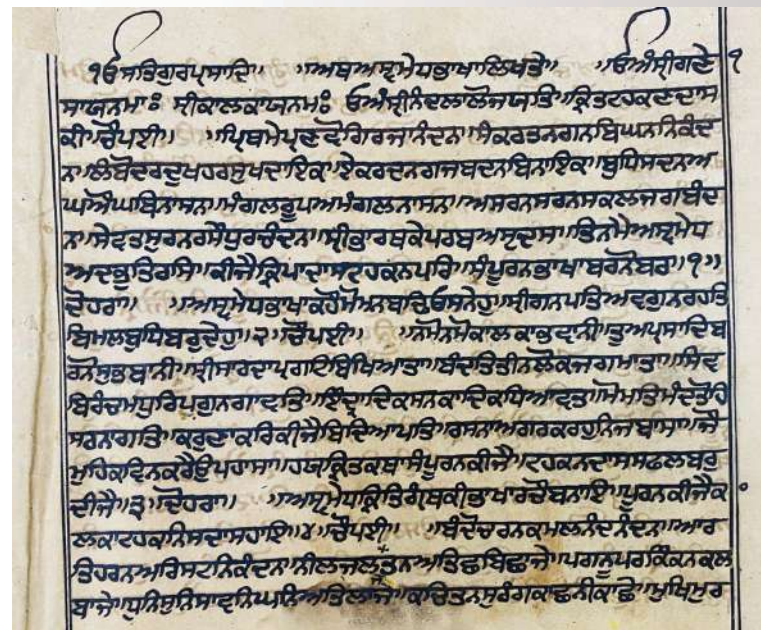 ੧ਓ ਸਤਿਗੁਰਪ੍ਰਸਾਦਿ॥ ॥ਅਥਅਸ੍ਵਮੇਧਭਾਖਾਲਿਖਤੇ॥ ॥ਓਅੰਸ੍ਰੀਗਣੇ ੧
ਸਾਯਨਮਃ ਸ੍ਰੀਕਾਲਕਾਯਨਮਃ ਓਅੰਸ੍ਰੀਨੰਦਲਾਲੋਜਯਤਿ॥ਕ੍ਰਿਤਟਹਕਣਦਾਸ
ਕੀ॥ਚੌਪਈ॥ ॥ਪ੍ਰਿਥਮੇਪ੍ਰਣਵੋਗਿਰਜਾਨੰਦਨਾ॥ਸੰਕਰਤਨਗਨਬਿਘਨਨਿਕੰਦ
ਨਾ॥ਲੰਬੋਦਰਦੁਖਹਰਸੁਖਦਾਇਕ॥ਏਕਰਦਨਗਜਬਦਨਬਿਨਾਇਕ॥ਬੁਧਿਸਦਨਅ
ਘਅੌਘਬਿਨਾਸਨਾ॥ਮੰਗਲਰੂਪਅਮੰਗਲਨਾਸਨਾ॥ਅਸਰਨਸਰਨਸਕਲਜਗਬੰਦ
ਨਾ॥ਸੇਵਤਸੁਰਨਰ ਚੰਦਨਾ॥ਸ੍ਰੀਭਾਰਥਕੇਪਰਬਅਸ੍ਟਦਸਾ॥ਤਿਨਮੈਅਸ੍ਵਮੇਧ
ਅਦਭੁਤਿਰਸਿ॥ਕੀਜੈਕ੍ਰਿਪਾਦਾਸਟਹਕਨਪਰਿ॥ਸੰਪੂਰਨਭਾਖਾਬਰਨੋਬਰ॥੧॥
ਦੋਹਰਾ॥ ॥ਅਸ੍ਵਮੇਧਭਾਖਾਕਹੋ ਸਨੇਹੁ॥ਸ੍ਰੀਗਨਪਤਿਅਵਗੁਨਰਹਤਿ
ਬਿਮਲਬੁਧਿਬਰੁਦੇਹੁ॥੨॥ਚੌਪਈ॥ ॥ਨਮੋਨਮੋਕਾਲਕਾਭਵਾਨੀ॥ਤੁਅਪ੍ਰਸਾਦਿਬ
ਰੋਨੋਸੁਭਬਾਨੀ॥ਸ੍ਰੀਸਾਰਦਾਪ੍ਰਗਟਿਬਿਖਿਆਤਾ॥ਬੰਦਤਿਤੀਨਲੋਕਜਗਮਾਤਾ॥ਸਿਵ
ਬਿਰੰਚਮਧੁਰਿਪੁਗੁਨਗਾਵਤਿ॥ਇੰਦ੍ਰਾਦਿਕਸਨਕਾਦਿਕਧਿਆਵਤਾ॥ਮੋਮਤਿਮੰਦਤੋਹਿ
ਸਰਨਾਗਤਿ॥ਕਰੁਣਾਕਰਿਕੀਜੈਬਿਦਿਆਪਤਿ॥ਰਸਨਾਅਗਰਕਰਹੁਨਿਜਬਾਸਾ॥ਜੈ
ਮੁਹਿਕਵਿਨਕਰੈਉਪਹਾਸਾ॥ਹਯਕ੍ਰਿਤਕਥਾਸੰਪੂਰਨਕੀਜੈ॥ਟਹਕਨਦਾਸਸਫਲਬਰੁ
ਦੀਜੈ॥੩॥ਦੋਹਰਾ॥ ॥ਅਸ੍ਵਮੇਧਕ੍ਰਿਤਿਗ੍ਰੰਥਕੀਭਾਖਾਰਚੌਬਨਾਇ॥ਪੂਰਨਕੀਜੈਕ
ਲਕਾਟਹਕਨਿਸਦਾਸਹਾਇ॥੪॥ਚੌਪਈ॥ ॥ਬੰਦੋਚਰਨਕਮਲਨੰਦਨੰਦਨਾ॥ਆਰ
ਤਿਹਰਨਅਰਿਸਟਨਿਕੰਦਨਾ॥ਨੀਲਜਲਜਤਨਅਤਿਛਬਿਛਾਜੇ॥ਪਗਨੂਪਰਕਿੰਕਨਕਲ
ਬਾਜੇ॥ਧੁਨਿਸੁਨਿਸਾਵਨਿਘਨਿਅਤਿਲਾਜੇ॥ਕਚਿਤਨਸੁਰੰਗਕਾਛਨੀਕਾਛੇ॥ਮੁਖਿਮੁਰ